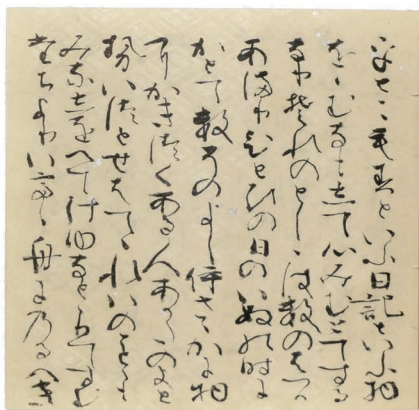 をとこもすといふ日記といふ物
をゝむなもして心みむとてする
なりそれのとしゝはすのはつか
あまりひとひの日のいぬの時に
かとてすそのよしいさゝかに物
にかきつくある人あかたのよと
せいつとせはてゝれいのことゝも
みなしをへてけゆなととりてすむ
たちよりいてゝ舟にのるへき